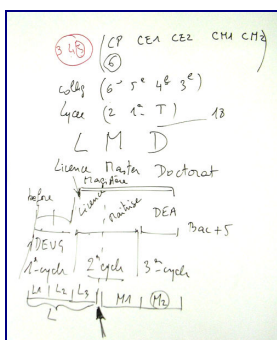 3 4 5 CP CE1 CE2 CM1 CM2
6
collg (6e 5e 4e 3e)
Lycee (2 1e T) 18
L M D
Licence Master Doctorat
Magistère
before Licence Maîtrise DEA
Bac+5
DEUG
1e cycle 2e cycle 3e cycle
L1 L2 L3 M1 M2
L